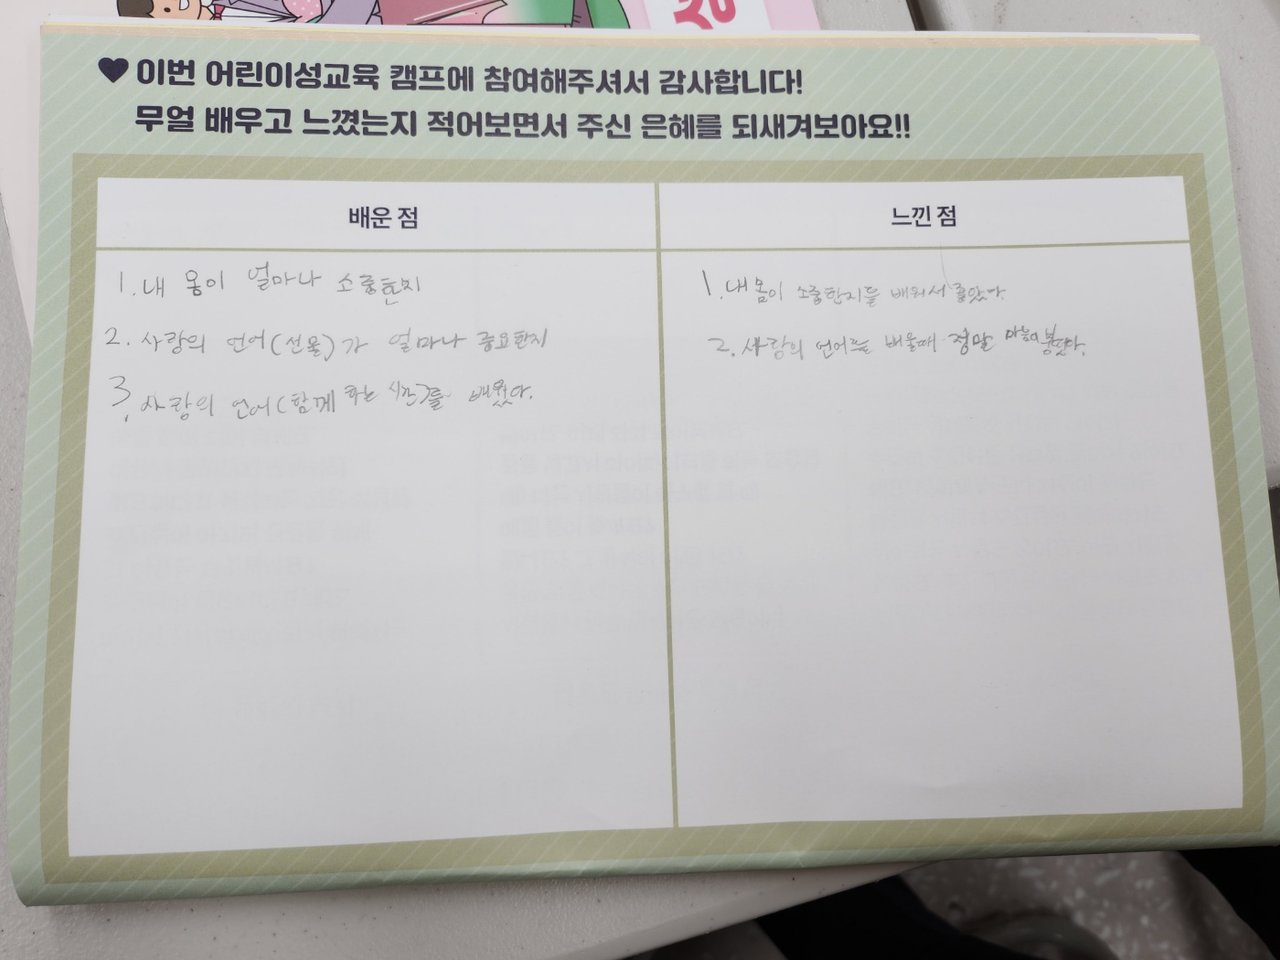 성
이번 어린이성교육 캠프에 참여해주셔서 감사합니다!
무얼 배우고 느꼈는지 적어보면서 주신 은혜를 되새겨보아요!!
배운 점
느낀 점
1. 내 몸이 얼마나 소중한지
2. 사랑의 언어(선물)가 얼마나 중요한지
3. 사랑의 언어(함께 하는 시간)를 배웠다.
1. 내 몸이 소중한지를 배워서 좋았다.
2. 사랑의 언어를 배울때 정말